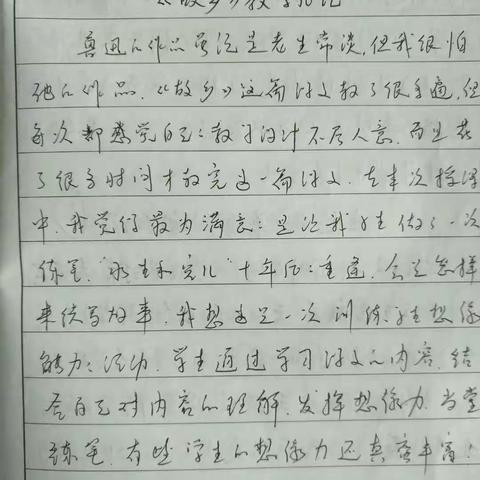 《故乡》教学札记
鲁迅的作品虽说是老生常谈,但我很怕
他的作品.《故乡》这篇课文教了很多遍,但
每次都感觉自己的教学设计不尽人意.而且花
了很多时间才教完这一篇课文.在本次授课
中,我觉得最为满意的是让我学生做了一次
练笔."水生和宏儿"十年后的重逢.会是怎样
来续写故事.我想这是一次训练学生想像
能力的活动.学生通过学习课文的内容.结
合自己对内容的理解.发挥想像力.当堂
练笔.有些学生的想像力还真蛮丰富!